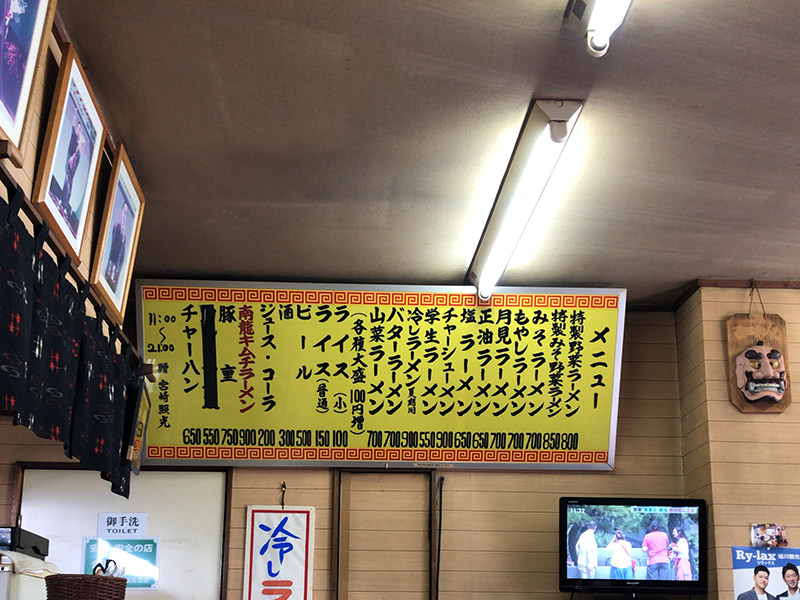 メニュー
特製野菜ラーメン 800
特製みそ野菜ラーメン 850
みそラーメン 700
もやしラーメン 700
月見ラーメン 700
正油ラーメン 650
塩ラーメン 650
チャーシューメン 900
学生ラーメン 550
冷しラーメン 夏期間 900
バターラーメン 700
山菜ラーメン 700
(各種大盛100円増)
ライス(小) 100
ライス(普通) 150
ビール 500
酒 300
ジュース・コーラ 200
南龍キムチラーメン 900
豚重 750
550
チャーハン 650
11:00
〜
21:00
贈 宮崎照光
御手洗
TOILET
安全の店
冷しラ
11:32
SHARP
Ry-lax
リラックス